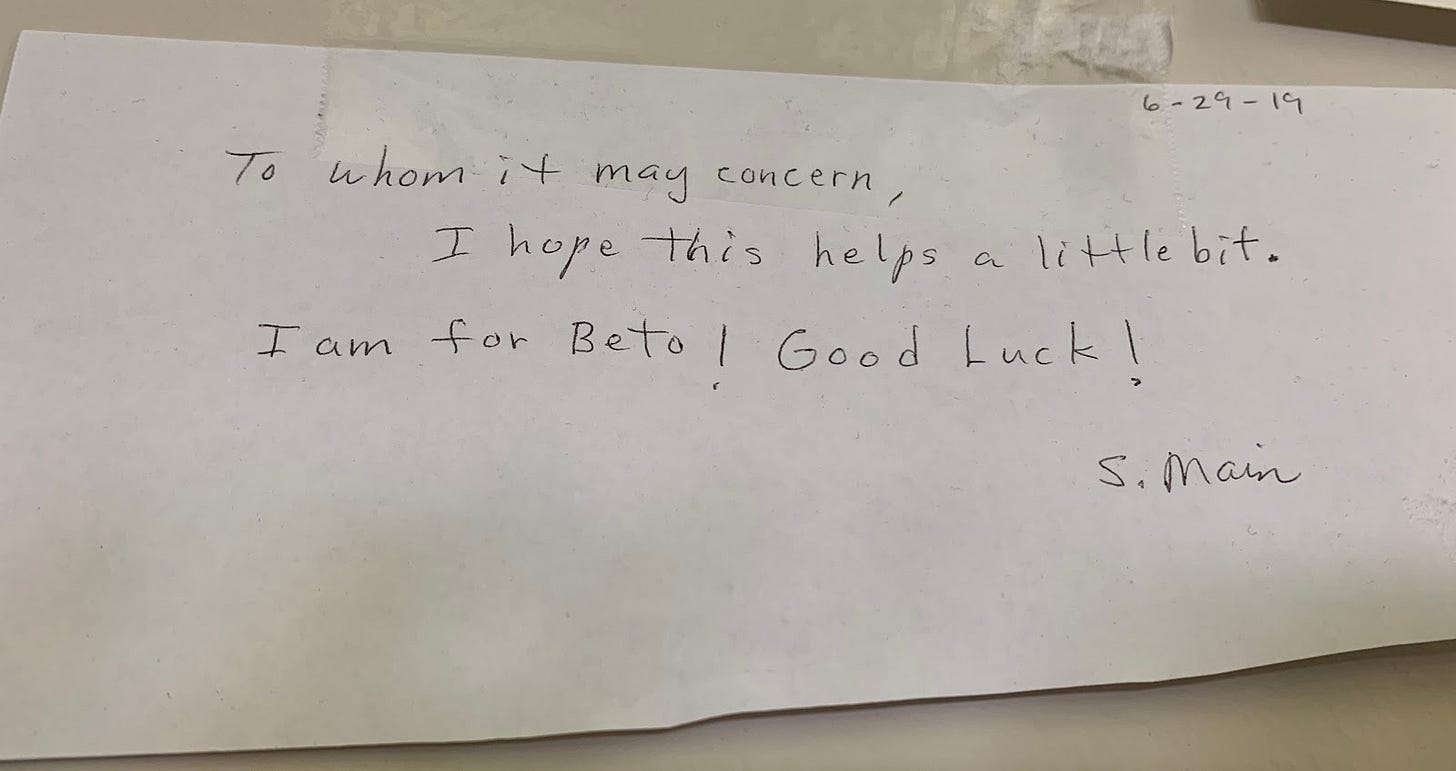 6-29-19
To whom it may concern,
I hope this helps a little bit.
I am for Beto! Good Luck!
S. Main